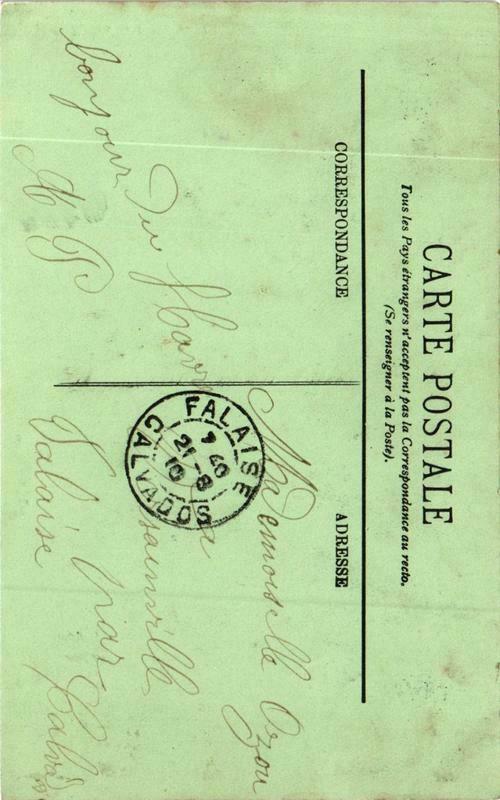 CARTE POSTALE
Tous les Pays étrangers n'acceptent pas la Correspondance au recto.
(Se renseigner à la Poste).
CORRESPONDANCE
ADRESSE
bonjour du Havre
A P
Mademoiselle Ozou
par
Falaise Calvados
FALAISE
7 40
21-8
10
CALVADOS